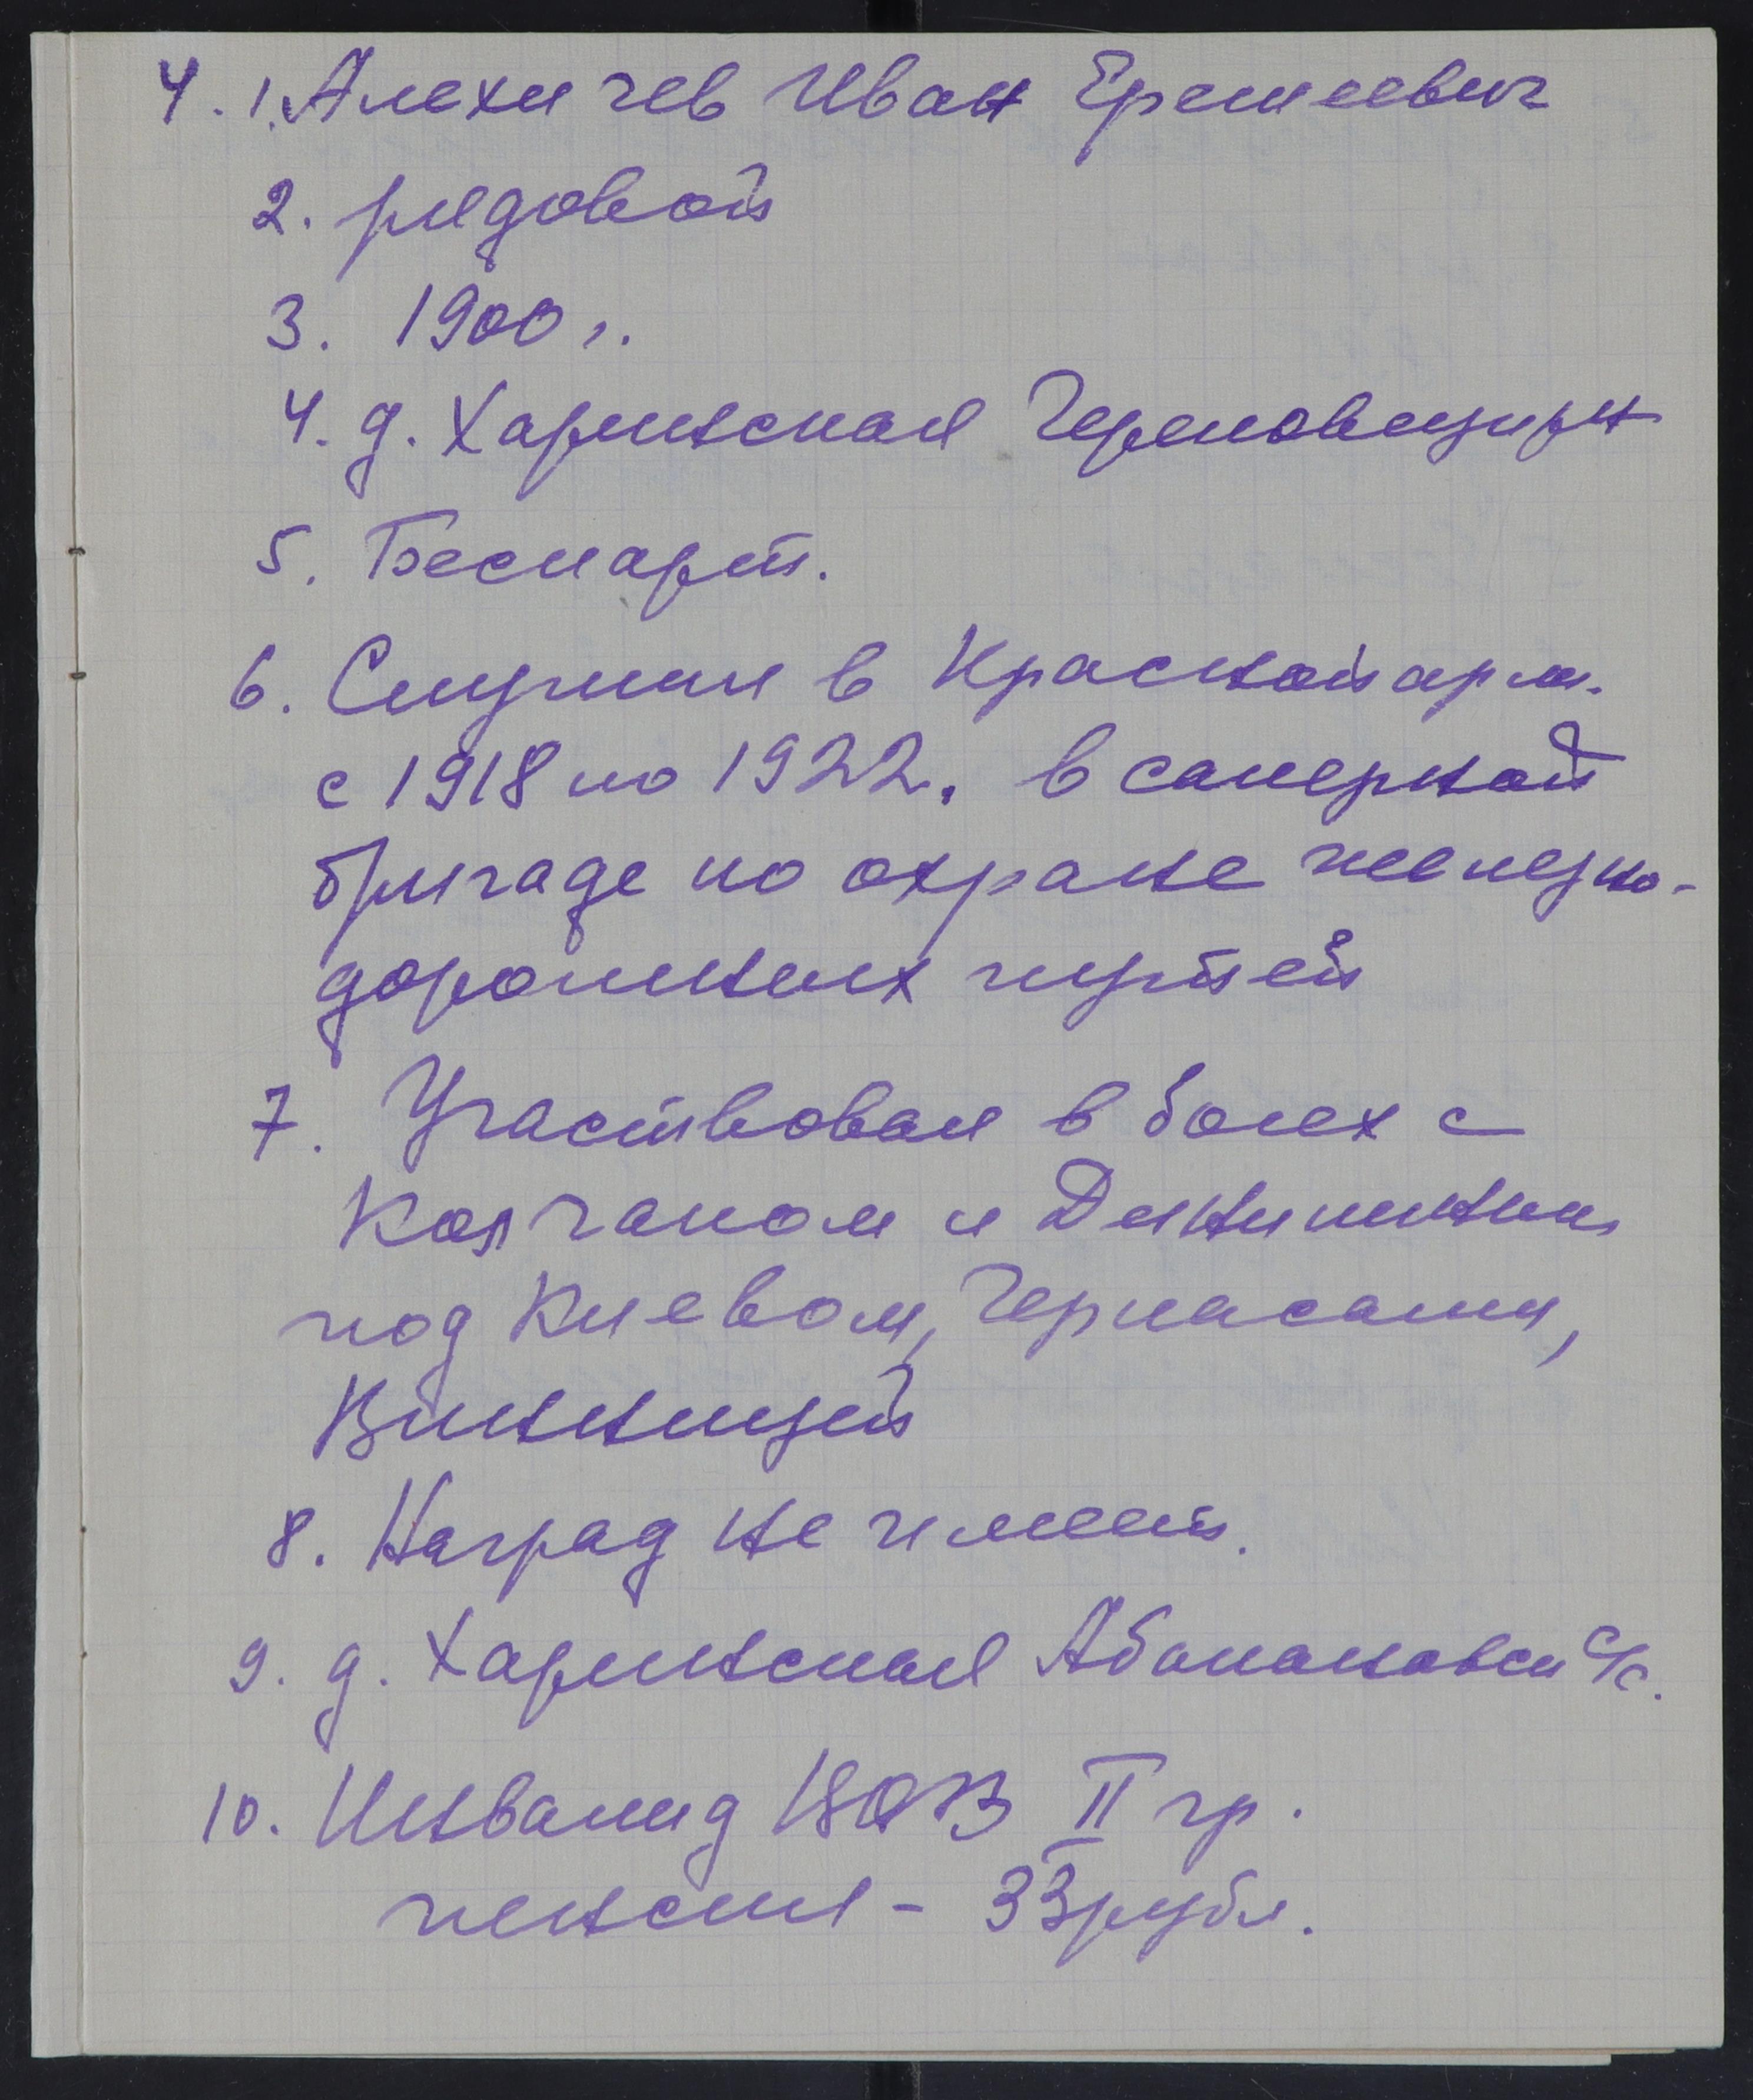 4. 1. Алехичев Иван Еремеевич
2. рядовой
3. 1900 г.
4. д. Харинская Череповец. р-н
5. Беспарт.
6. Служил в Красной арм.
с 1918 по 1922. в саперной
бригаде по охране железно-
дорожных путей
7. Участвовал в боях с
Колчаком и Деникиным
под Киевом, Черкасами,
Винницей
8. Наград не имеет.
9. д. Харинская Абакановск с/с.
10. Инвалид II гр.
пенсия - 33 рубл.